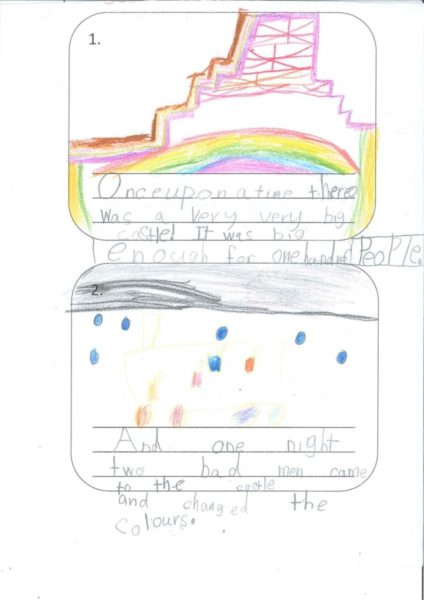 1.
Once upon a time there
was a very very big
castle! It was big
enough for one hundred People.
2.
And one night
two bad men came
to the castle
and changed the
colours.